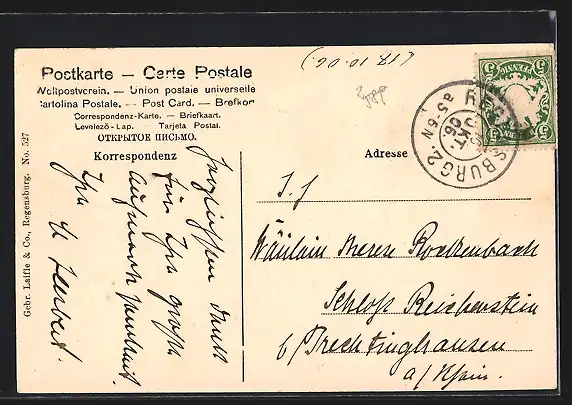 (18.10.06.)
Postkarte — Carte Postale
Weltpostverein. — Union postale universelle
Cartolina Postale. — Post Card. — Brefkort
Correspondenz-Karte. — Briefkaart.
Levelező-Lap. Tarjeta Postal.
ОТКРЫТОЕ ПИСЬМО.
Korrespondenz
Adresse
Gebr. Laifle & Co., Regensburg. No. 527
Herzlichsten Dank
für Ihre große
Ihre
5 PFENNIG 5
SBURG 2.
OKT.
06
a5-6N
Fräulein Therese Rockenbach
Schloss Reichenstein
b/Trechtinghausen
a/Rhein.